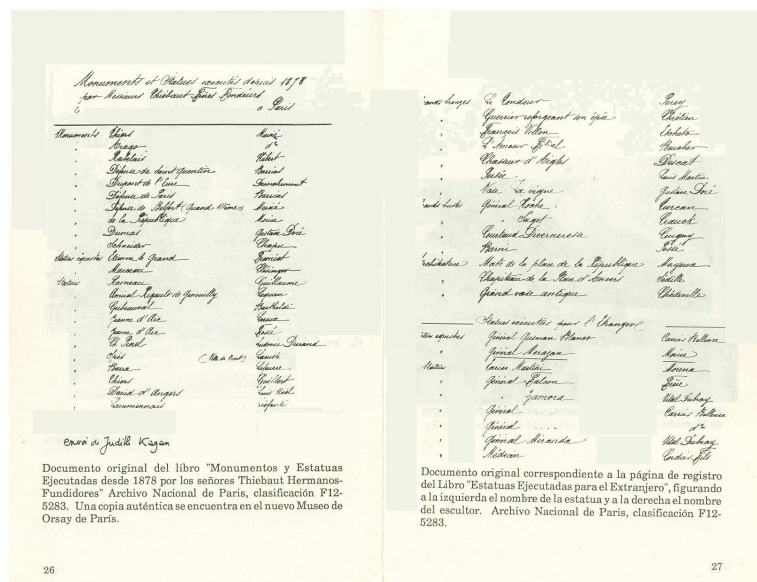 Monuments et Statues executés depuis 1878
par Messieurs Thiébaut Frères Fondeurs
à Paris
Monuments Thiers Mercié
" Arago dº
" Rabelais Hébert
" Défense de Saint Quentin Barrias
" Dupont de l'Eure
" Défense de Paris Barrias
" Défense de Belfort (Quand Même) Mercié
" de la République Morice
" Dumas Gustave Doré
" Schneider Chapu
Statues équestres le Grand Frémiet
" Marceau Clésinger
Statues Rameau Guillaume
" Amiral Rigault de Genouilly
" Gribeauval Bartholdi
" Jeanne d'Arc
" Jeanne d'Arc
" Ch. Ludovic Durand
"
" Bara
" Thiers Guilbert
" David d'Angers Louis Noël
" Lammennais
envió de Judith Kagan
Documento original del libro "Monumentos y Estatuas
Ejecutadas desde 1878 por los señores Thiebaut Hermanos-
Fundidores" Archivo Nacional de Paris, clasificación F12-
5283. Una copia auténtica se encuentra en el nuevo Museo de
Orsay de París.
26
ands bronzes Le Tondeur Perey
" Guerrier reforgeant son épée Chrétien
" François Villon Etcheto
" L'Amour Boucher
" Chasseur d'Aigles Descat
" Persée Louis Martin
" Vase La vigne Gustave Doré
ands bustes Général Hoche
" Crauck
" Courtaud Diverneresse Cugny
" Barni
rchitecture Mats de la place de la République Mayeux
" Chapiteau de la Place d'Anvers Sédille
" Grand vase antique Chédeville
Statues exécutées pour l'Etranger
équestres Général Gusman Blanco Carrier Belleuse
" Général Morazan Morice
Statues Morena
" Général
" Zamora Vital Dubray
" Général Carrier Belleuse
" Général ..... dº
" Général Miranda Vital Dubray
" Médecin Cordier fils
Documento original correspondiente a la página de registro
del Libro "Estatuas Ejecutadas para el Extranjero", figurando
a la izquierda el nombre de la estatua y a la derecha el nombre
del escultor. Archivo Nacional de Paris, clasificación F12-
5283.
27